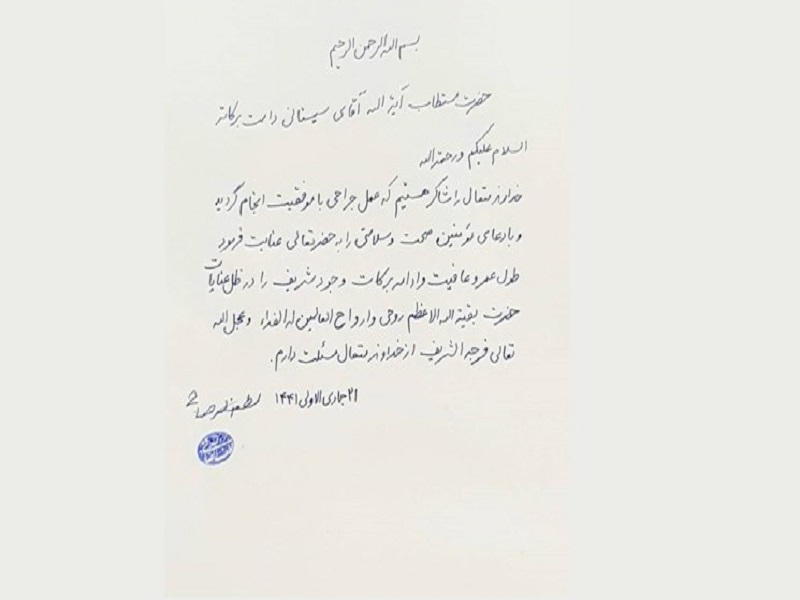 بسم الله الرحمن الرحیم
حضرت مستطاب آیة الله آقای سیستانی دامت برکاته
السلام علیکم و رحمة الله
خداوند متعال را شاکر هستیم که عمل جراحی با موفقیت انجام گردید
و با دعای مؤمنین صحت و سلامتی را به حضرتعالی عنایت فرمود
طول عمر و عافیت و ادامه برکات وجود شریف را در ظل عنایات
حضرت بقیة الله الاعظم روحی و ارواح العالمین له الفداء و عجل الله
تعالی فرجه الشریف از خداوند متعال مسئلت دارم.
۲۱ جمادی الاولی ۱۴۴۱ لطف الله صافی